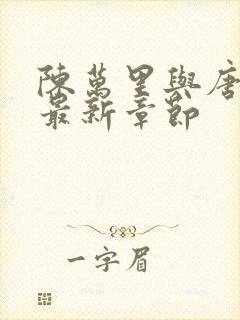 陳萬里與唐
最新章節
一字眉